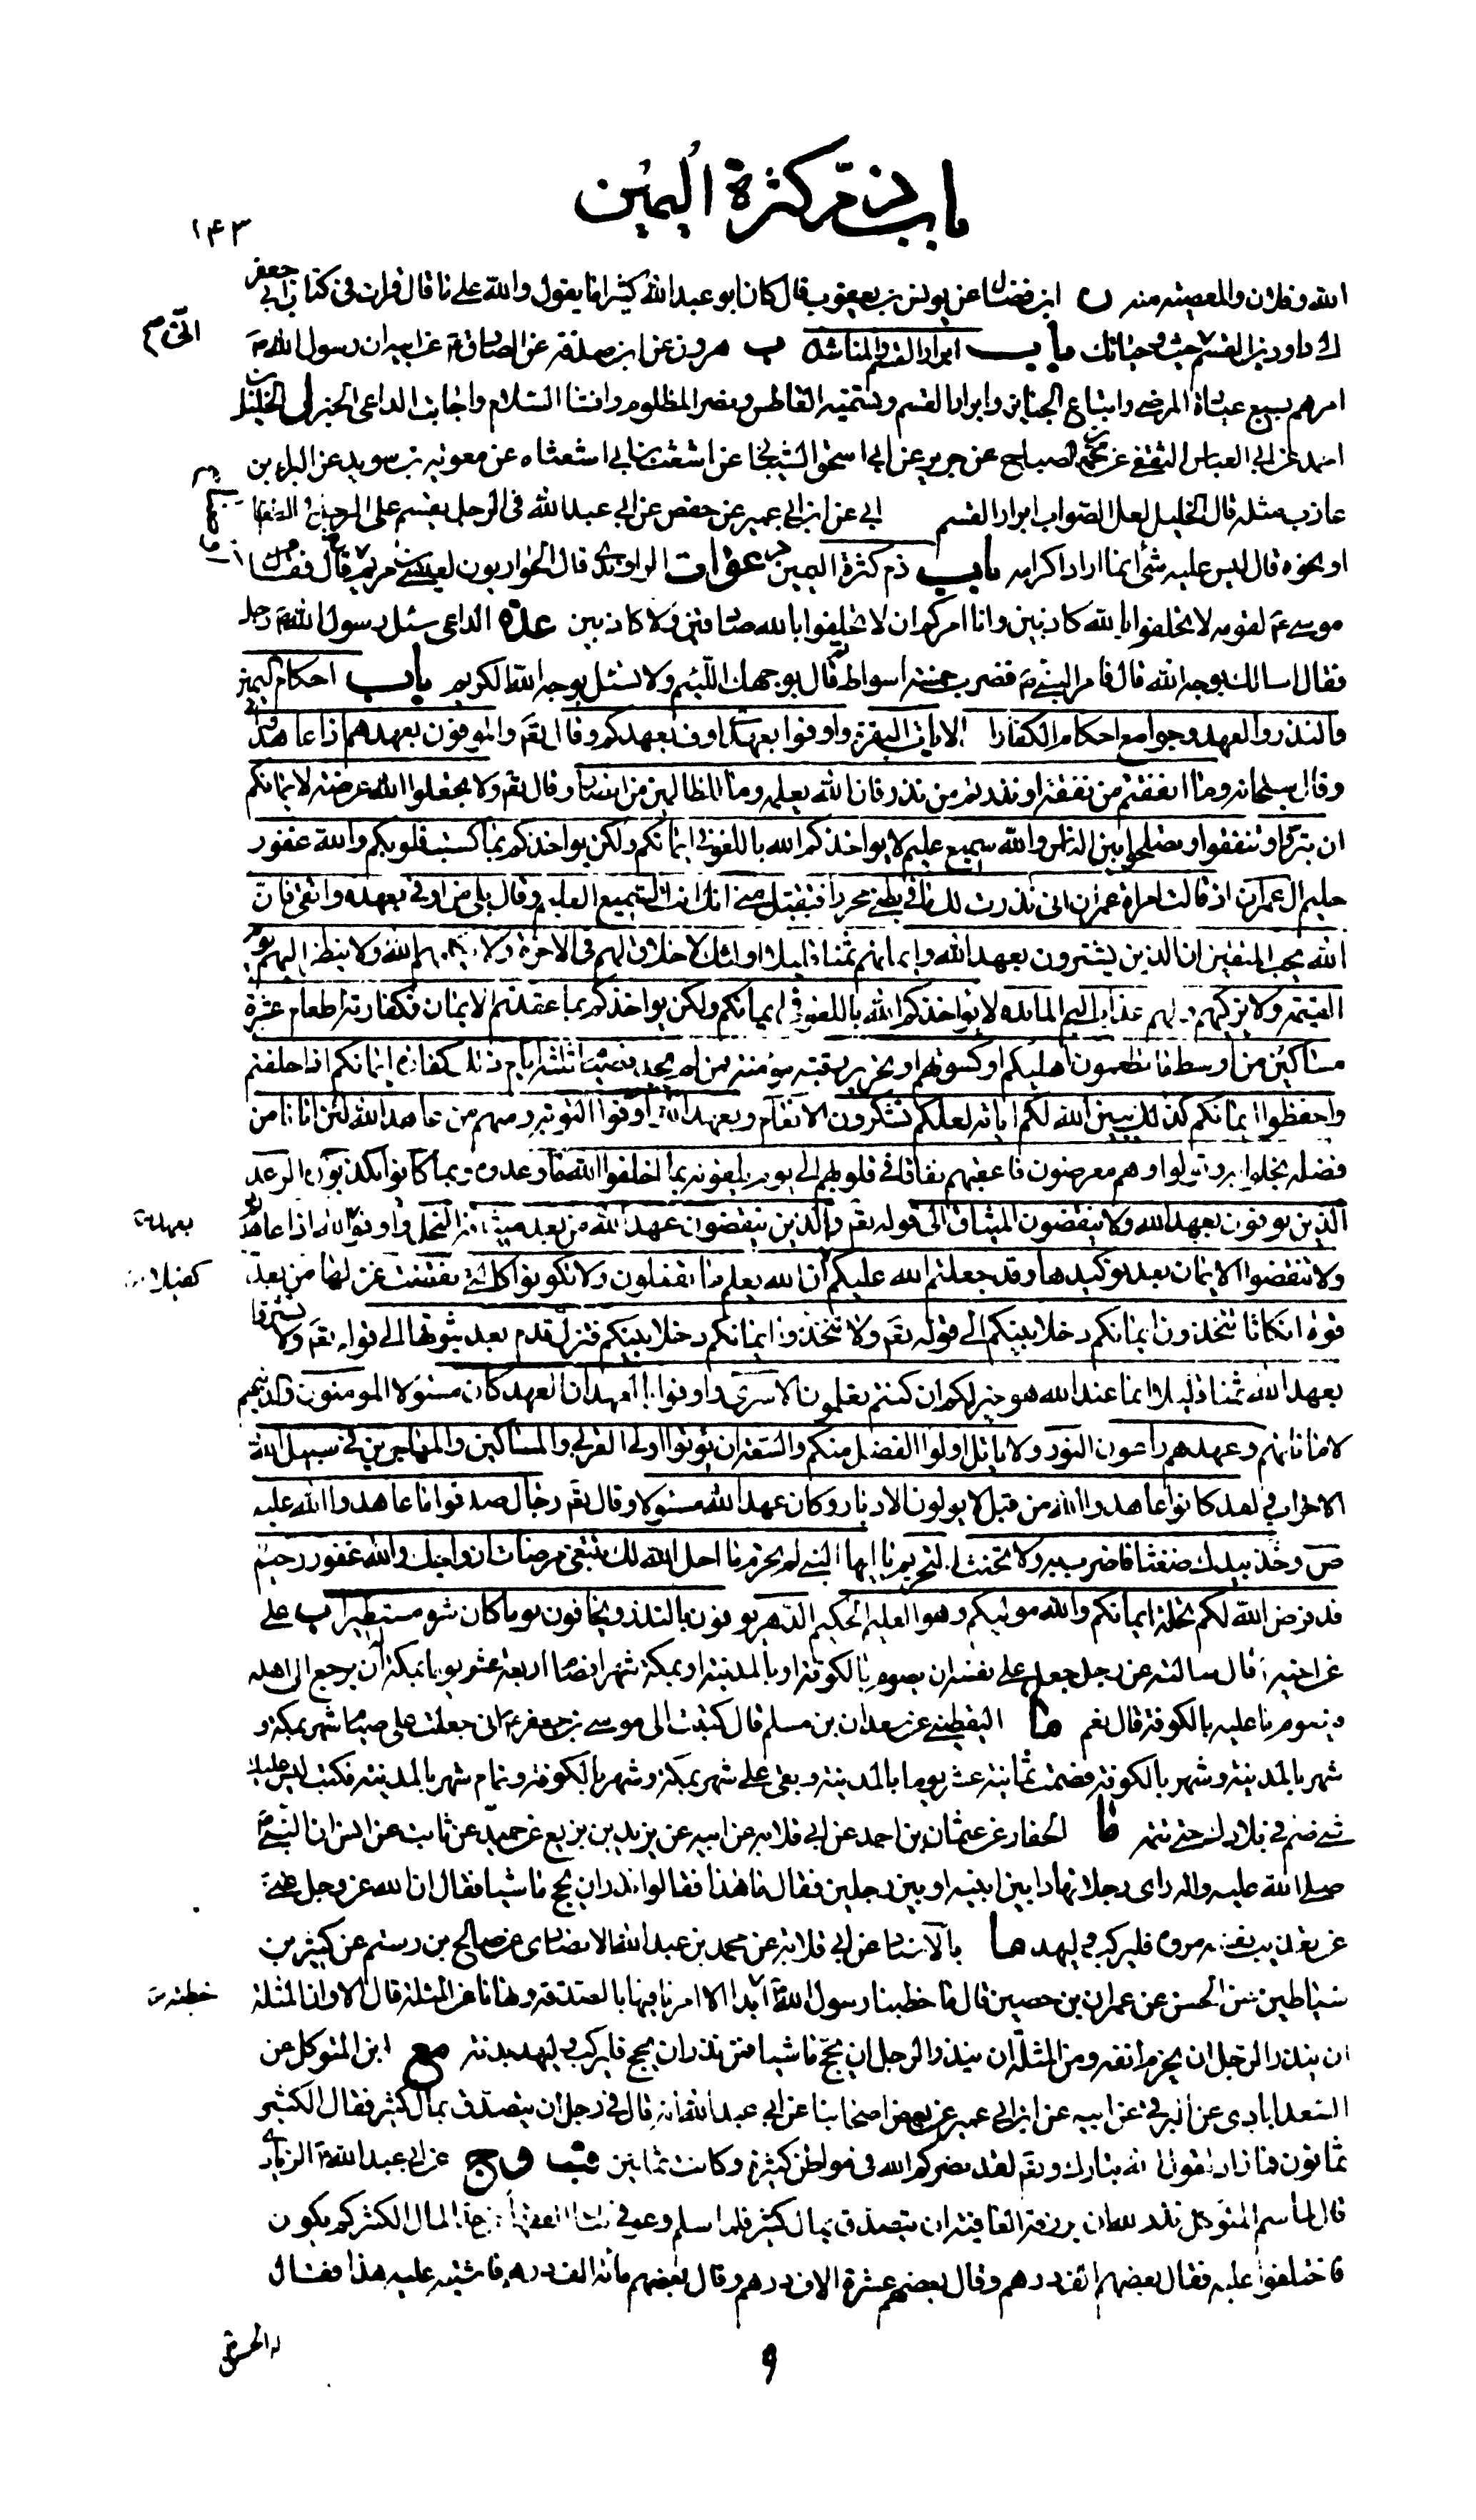 باب ذم كثرة اليمين
١۴٣
الله وفلان والمعصية منه ں ابن فضال عن يونس بن يعقوب قال كان ابو عبد الله كثيرا ما يقول والله على ما قال قرات فى كتاب ابي جعفر
الى داود بن القسم وحياتك باب ابرار القسم والمناشدة ب هرون عن ابن صدقة عن الصادق ع عن ابيه ان رسول الله ص
امرهم بسبع عيادة المرضى واتباع الجنايز وابرار القسم وتسميته العاطس ونصر المظلوم وافشاء السلام واجابة الداعى الخبر ل الخليل
احمد عن ابي العباس الثقفى عن محمد الصباح عن جرير عن ابي اسحق الشيباني عن اشعث بن ابي اشعثاء عن معوية بن سويد عن البراء بن
عازب مثله قال الخليل لعل الصواب ابرار القسم ابي عن ابن ابي عمير عن حفص عن ابي عبد الله فى الرجل يقسم على الرجل فى الطعام
او نحوه قال ليس عليه شئ انما اراد اكرامه باب ذم كثرة اليمين دعوات الراوندى قال الحواريون لعيسى بن مريم قال فقال
موسى ع لقومه لا تحلفوا بالله كاذبين وانا امركم ان لا تحلفوا بالله صادقين ولا كاذبين عدة الداعى سئل رسول الله ص رجل
فقال اسالك بوجه الله قال فامر النبي ص فضرب خمسة اسواط ثم قال بوجهك اللئيم ولا تسئل بوجه الله الكريم باب احكام اليمين
والنذر والعهد وجوامع احكام الكفارات الايات البقرة واوفوا بعهدى اوف بعهدكم وقال تعم والموفون بعهدهم اذا عاهدوا
وقال سبحانه وما انفقتم من نفقة او نذرتم من نذر فان الله يعلمه وما للظالمين من انصار وقال تعم ولا تجعلوا الله عرضة لايمانكم
ان تبروا وتتقوا وتصلحوا بين الناس والله سميع عليم لا يواخذكم الله باللغو فى ايمانكم ولكن يواخذكم بما كسبت قلوبكم والله غفور
حليم ال عمران اذ قالت امراة عمران انى نذرت لك ما فى بطنى محررا فتقبل منى انك انت السميع العليم وقال بلى من اوفى بعهده واتقى فان
الله يحب المتقين ان الذين يشترون بعهد الله وايمانهم ثمنا قليلا اولئك لا خلاق لهم فى الاخرة ولا يكلمهم الله ولا ينظر اليهم يوم
القيمة ولا يزكيهم ولهم عذاب اليم المائده لا يواخذكم الله باللغو فى ايمانكم ولكن يواخذكم بما عقدتم الايمان فكفارته اطعام عشرة
مساكين من اوسط ما تطعمون اهليكم او كسوتهم او تحرير رقبة مؤمنة فمن لم يجد فصيام ثلثة ايام ذلك كفارة ايمانكم اذا حلفتم
واحفظوا ايمانكم كذلك يبين الله لكم اياته لعلكم تشكرون الانعام وبعهد الله اوفوا التوبة ومنهم من عاهد الله لئن اتانا من
فضله بخلوا به وتولوا وهم معرضون فاعقبهم نفاقا فى قلوبهم الى يوم يلقونه بما اخلفوا الله ما وعدوه وبما كانوا يكذبون الرعد
الذين يوفون بعهد الله ولا ينقضون الميثاق الى قوله تعم والذين ينقضون عهد الله من بعد ميثاقه النحل واوفوا الله اذا عاهدتم بعهد
ولا تنقضوا الايمان بعد توكيدها وقد جعلتم الله عليكم ان الله يعلم ما تفعلون ولا تكونوا كالتى نقضت غزلها من بعد كفيلا
قوة انكاثا تتخذون ايمانكم دخلا بينكم الى قوله تعم ولا تتخذوا ايمانكم دخلا بينكم فتزل قدم بعد ثبوتها الى قوله تعم ولا تشتروا
بعهد الله ثمنا قليلا انما عند الله هو خير لكم ان كنتم تعلمون الاسرى واوفوا بالعهد ان العهد كان مسئولا المومنون والذينهم
لاماناتهم وعهدهم راعون النور ولا ياتل اولوا الفضل منكم والسعة ان يؤتوا اولى القربى والمساكين والمهاجرين فى سبيل الله
الاحزاب ولقد كانوا عاهدوا الله من قبل لا يولون الادبار وكان عهد الله مسئولا وقال تعم رجال صدقوا ما عاهدوا الله عليه
ص وخذ بيدك ضغثا فاضرب به ولا تحنث التحريم يا ايها النبي لم تحرم ما احل الله لك تبتغى مرضات ازواجك والله غفور رحيم
قد فرض الله لكم تحلة ايمانكم والله موليكم وهو العليم الحكيم الدهر يوفون بالنذر ويخافون يوما كان شره مستطيرا ب على
عن اخيه قال سالته عن رجل جعل على نفسه ان يصوم بالكوفة او بالمدينة او بمكة شهرا فصام اربعة عشر يوما بمكة له ان يرجع الى اهله
ويصوم ما عليه بالكوفة قال نعم ما اليقطينى عن سعدان بن مسلم قال كتبت الى موسى بن جعفر ع انى جعلت على صيام شهر بمكة و
شهر بالمدينة وشهر بالكوفة فصمت ثمانية عشر يوما بالمدينة وبقى على شهر بمكة وشهر بالكوفة وتمام شهر بالمدينة فكتب ليس عليك
شئ صم فى بلادك حتى تتمه ما الحفار عن عثمان بن احمد عن ابي قلابة عن ابيه عن يزيد بن بزيع عن حميد عن ثابت عن انس ان النبي ص
صلى الله عليه واله راى رجلا تهادا بين ابنيه او بين رجلين فقال ما هذا فقالوا نذر ان يحج ماشيا فقال ان الله عز وجل غنى
عن تعذيب نفسه مروه فليركب وليهد ما بالاسناد عن ابي قلابة عن محمد بن عبد الله الانصارى عن صالح بن رستم عن كثير بن
شياطين عن الحسن عن عمران بن حصين قال ما خطبنا رسول الله ص ابدا الا امرنا فيها بالصدقة ونهانا عن المثلة قال الا وان المثلة خطبة
ان ينذر الرجل ان يخرم انفه ومن المثلة ان ينذر الرجل ان يحج ماشيا فمن نذر ان يحج فليركب وليهد بدنة مع ابن المتوكل عن
السعدابادى عن البرقى عن ابيه عن ابن ابي عمير عن بعض اصحابنا عن ابي عبد الله انه قال فى رجل ان يتصدق بمال كثير فقال الكثير
ثمانون فما زاد لقول الله تبارك وتعم لقد نصركم الله فى مواطن كثيرة وكانت ثمانين قب و ج عن ابي عبد الله الزيادى
قال لما سم المتوكل نذر لله ان رزقه العافية ان يتصدق بمال كثير فلما سلم وعوفى المال الكثير كم يكون
فاختلفوا عليه فقال بعضهم الف درهم وقال بعضهم عشرة الاف درهم وقال بعضهم مائة الف درهم فاشتبه عليه هذا فقال
له الحسن
٩